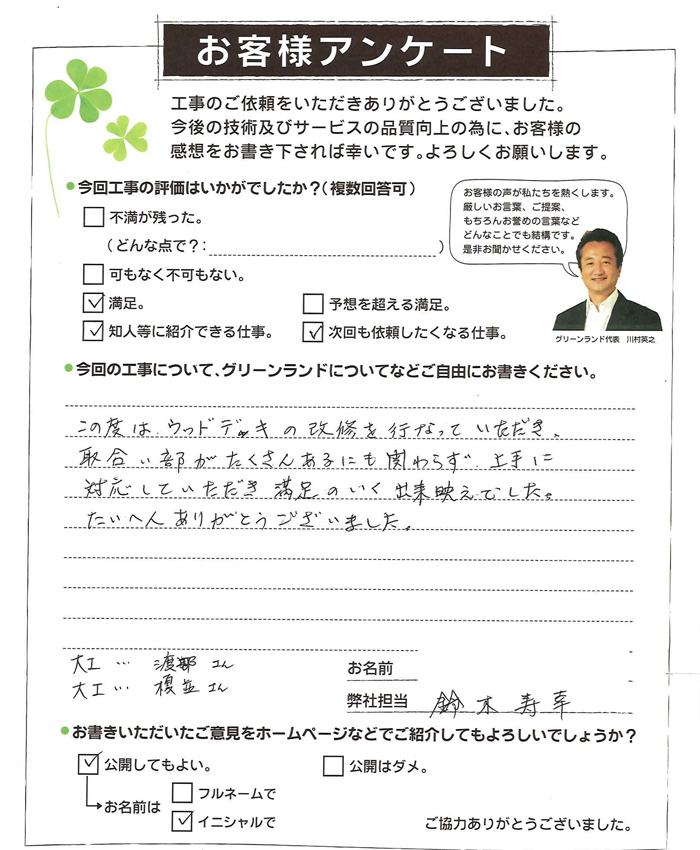 お客様アンケート
工事のご依頼をいただきありがとうございました。
今後の技術及びサービスの品質向上の為に、お客様の
感想をお書き下されば幸いです。よろしくお願いします。
●今回工事の評価はいかがでしたか？（複数回答可）
不満が残った。
（どんな点で？： ）
可もなく不可もない。
満足。
予想を超える満足。
知人等に紹介できる仕事。
次回も依頼したくなる仕事。
お客様の声が私たちを熱くします。
厳しいお言葉、ご提案、
もちろんお誉めの言葉など
どんなことでも結構です。
是非お聞かせください。
グリーンランド代表 川村英之
●今回の工事について、グリーンランドについてなどご自由にお書きください。
この度は、ウッドデッキの改修を行なっていただき、
取合い部がたくさんあるにも関わらず、上手に
対応していただき満足のいく出来映えでした。
たいへんありがとうございました。
大工… 渡部さん
大工… 榎並さん
お名前
弊社担当 鈴木寿幸
●お書きいただいたご意見をホームページなどでご紹介してもよろしいでしょうか？
公開してもよい。
公開はダメ。
お名前は
フルネームで
イニシャルで
ご協力ありがとうございました。